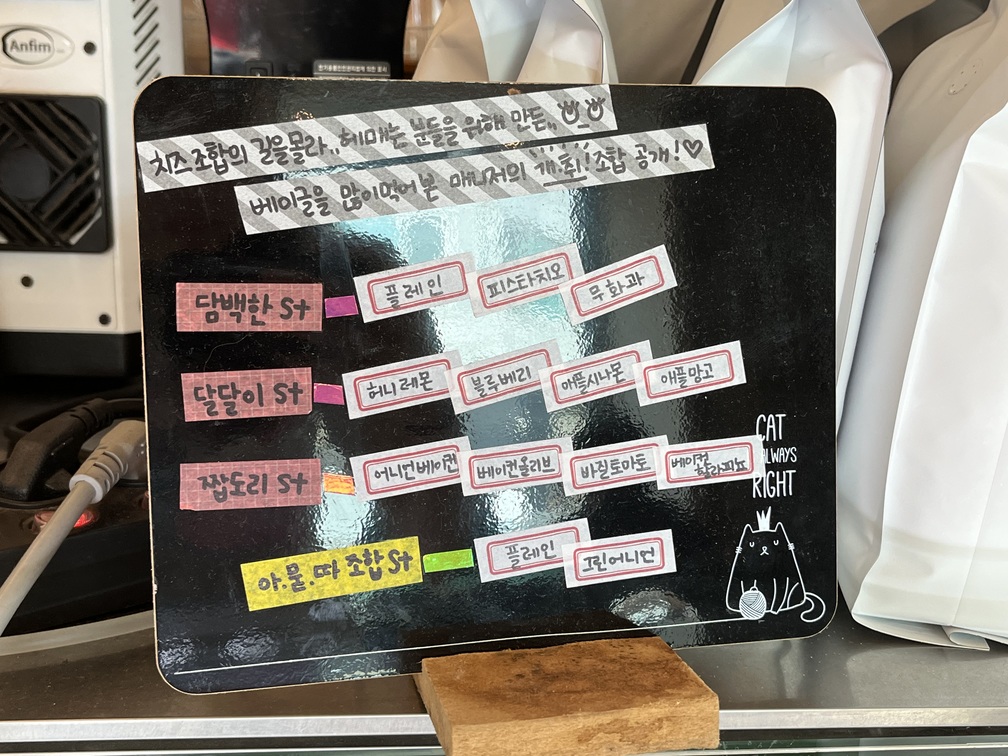 Anfim
치즈조합의 길을몰라.. 헤매는 분들을 위해 만든,,
베이글을 많이먹어본 매니저의 개.취! 조합 공개!♡
담백한 St 플레인 피스타치오 무화과
달달이 St 허니레몬 블루베리 애플시나몬 애플망고
짭도리 St 어니언베이컨 베이컨올리브 바질토마토 베이컨할라피뇨
아.묻.따 조합 St 플레인 그린어니언
CAT
ALWAYS
RIGHT